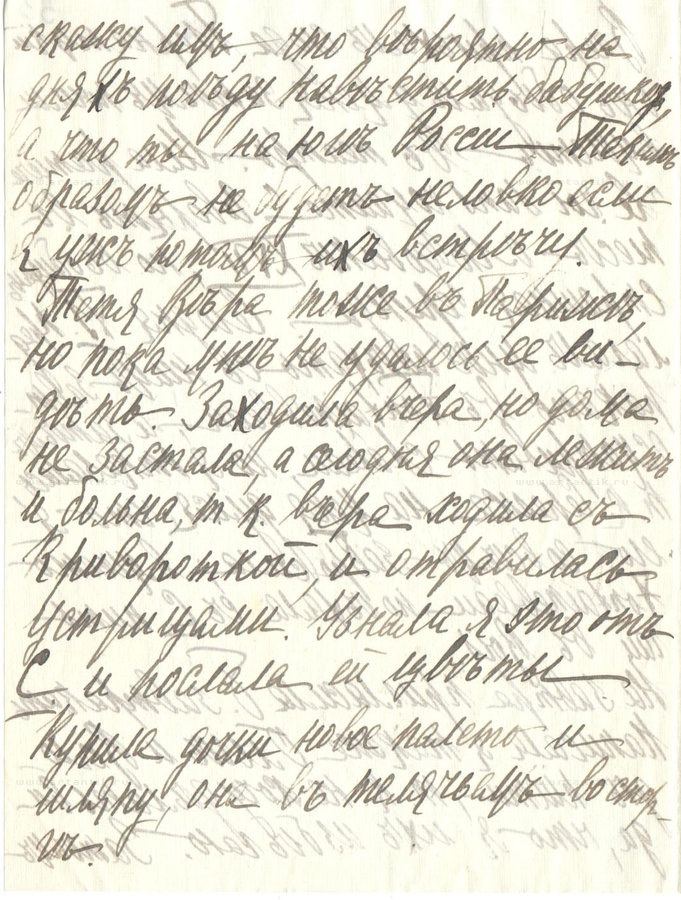 скажу имъ, что вѣроятно на
дняхъ поѣду навѣстить бабушку,
а что ты на югѣ Россіи. Такимъ
образомъ не будетъ неловко если
я ужъ потомъ ихъ встрѣчу.
Тетя Вѣра тоже въ Парижѣ,
но пока мнѣ не удалось ее ви-
дѣть. Заходила вчера, но дома
не застала, а сегодня она лежитъ
и больна, т. к. вчера ходила съ
Кривороткой, и отравилась
устрицами. Узнала я это отъ
С. и послала ей цвѣты
Купила дочки новое палето и
шляпу, она въ телячьемъ востор-
гѣ.